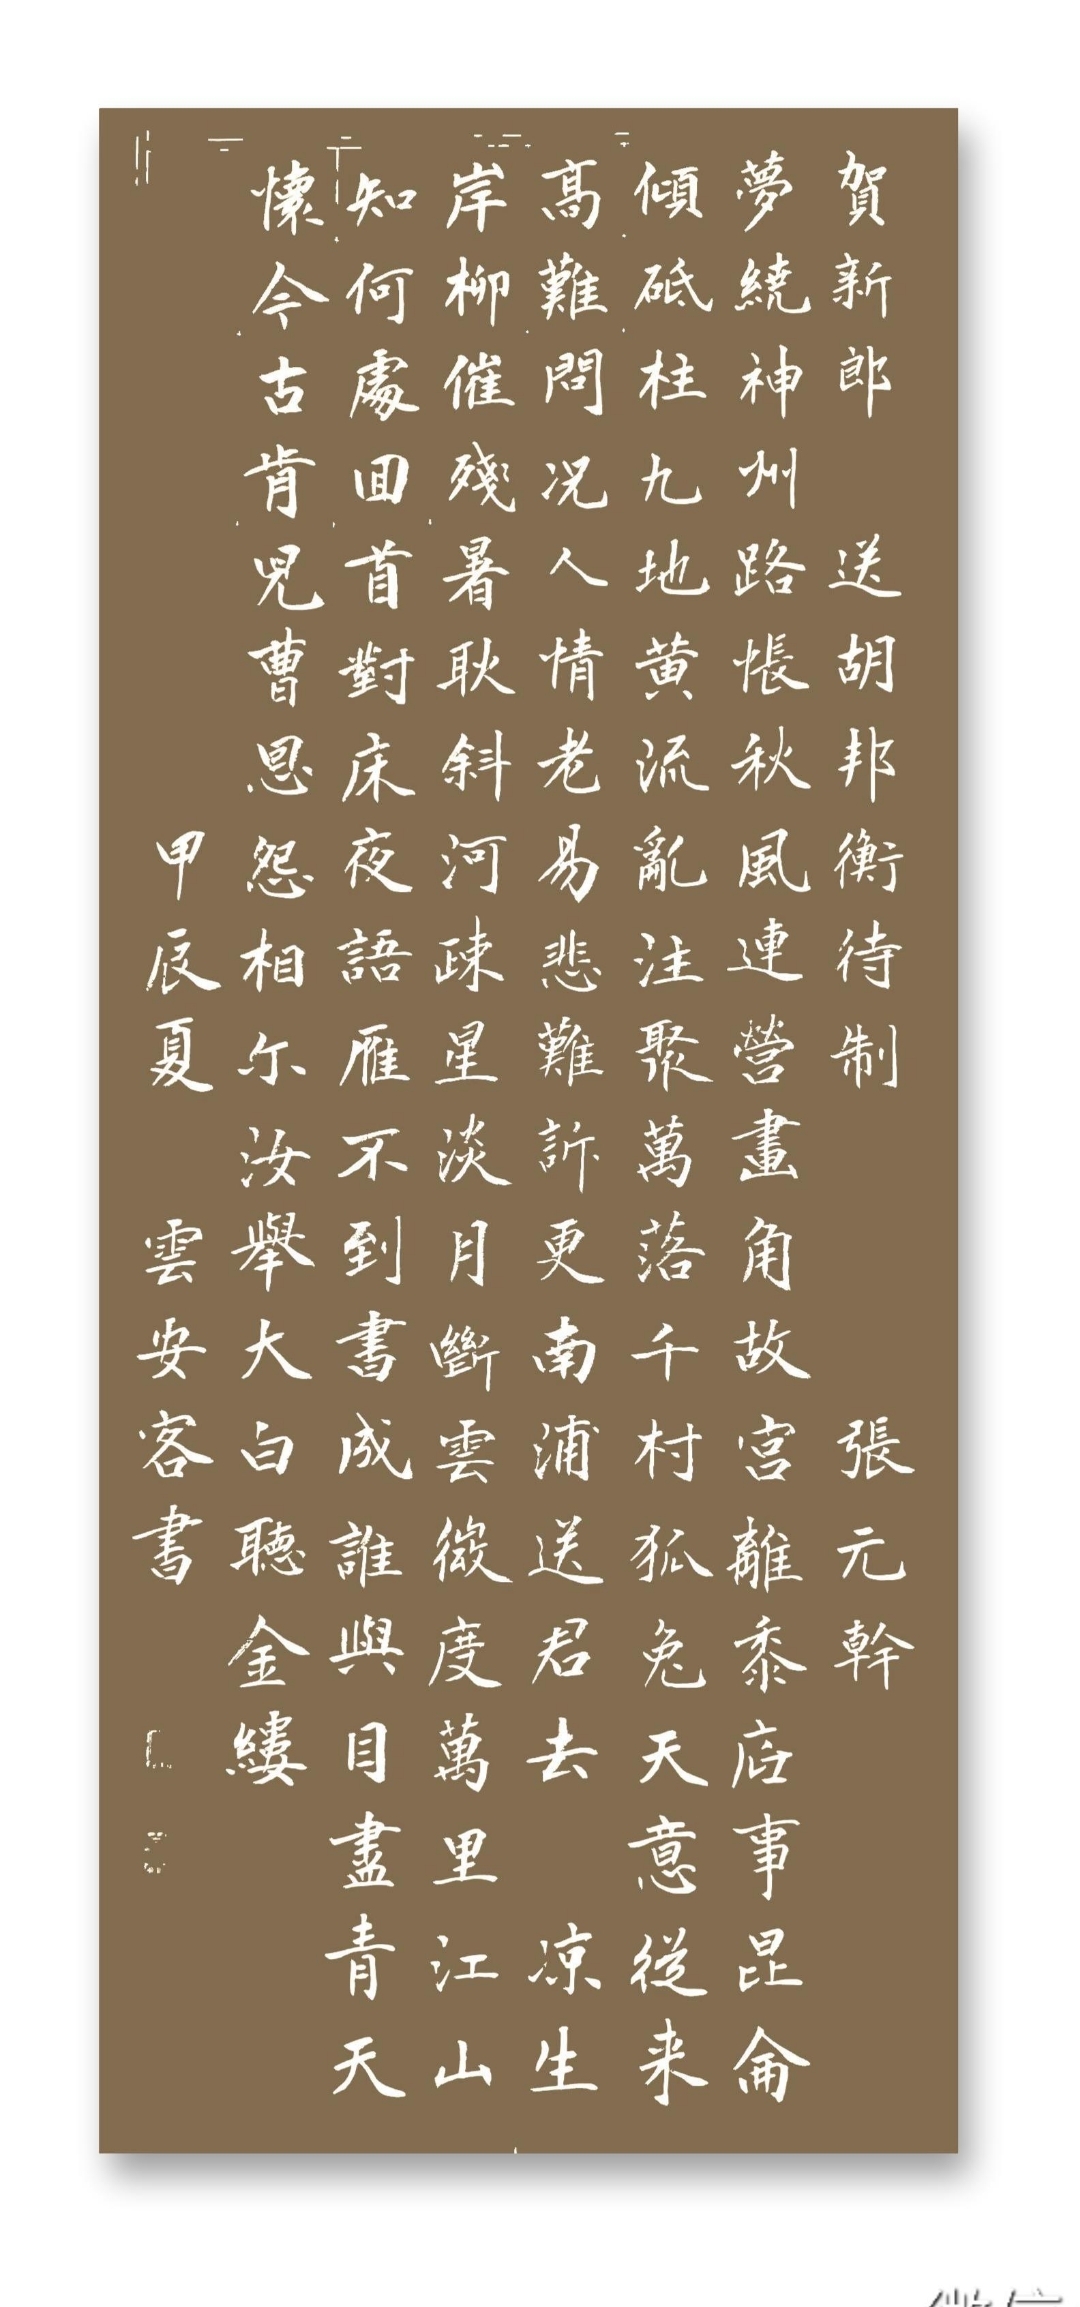 賀新郎 送胡邦衡待制 張元幹
夢繞神州路悵秋風連營畫角故宮離黍底事昆侖
傾砥柱九地黄流亂注聚萬落千村狐兔天意從来
高難問况人情老易悲難訴更南浦送君去 凉生
岸柳催殘暑耿斜河疎星淡月斷雲微度萬里江山
知何處回首對床夜語雁不到書成誰與目盡青天
懷今古肯兒曹恩怨相尔汝舉大白聽金縷
甲辰夏 雲安客書